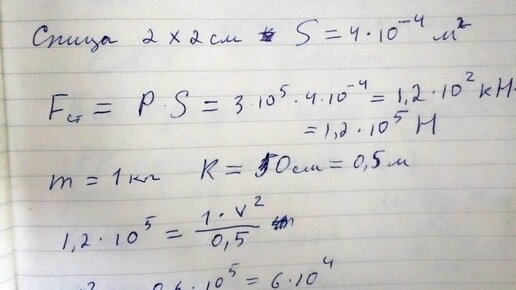 Спица 2 x 2 см S = 4 · 10⁻⁴ м²
F = P · S = 3 · 10⁵ · 4 · 10⁻⁴ = 1,2 · 10² кН
= 1,2 · 10⁵ Н
m = 1 кг R = 50 см = 0,5 м
1,2 · 10⁵ = 1 · V² / 0,5
0,6 · 10⁵ = 6 · 10⁴